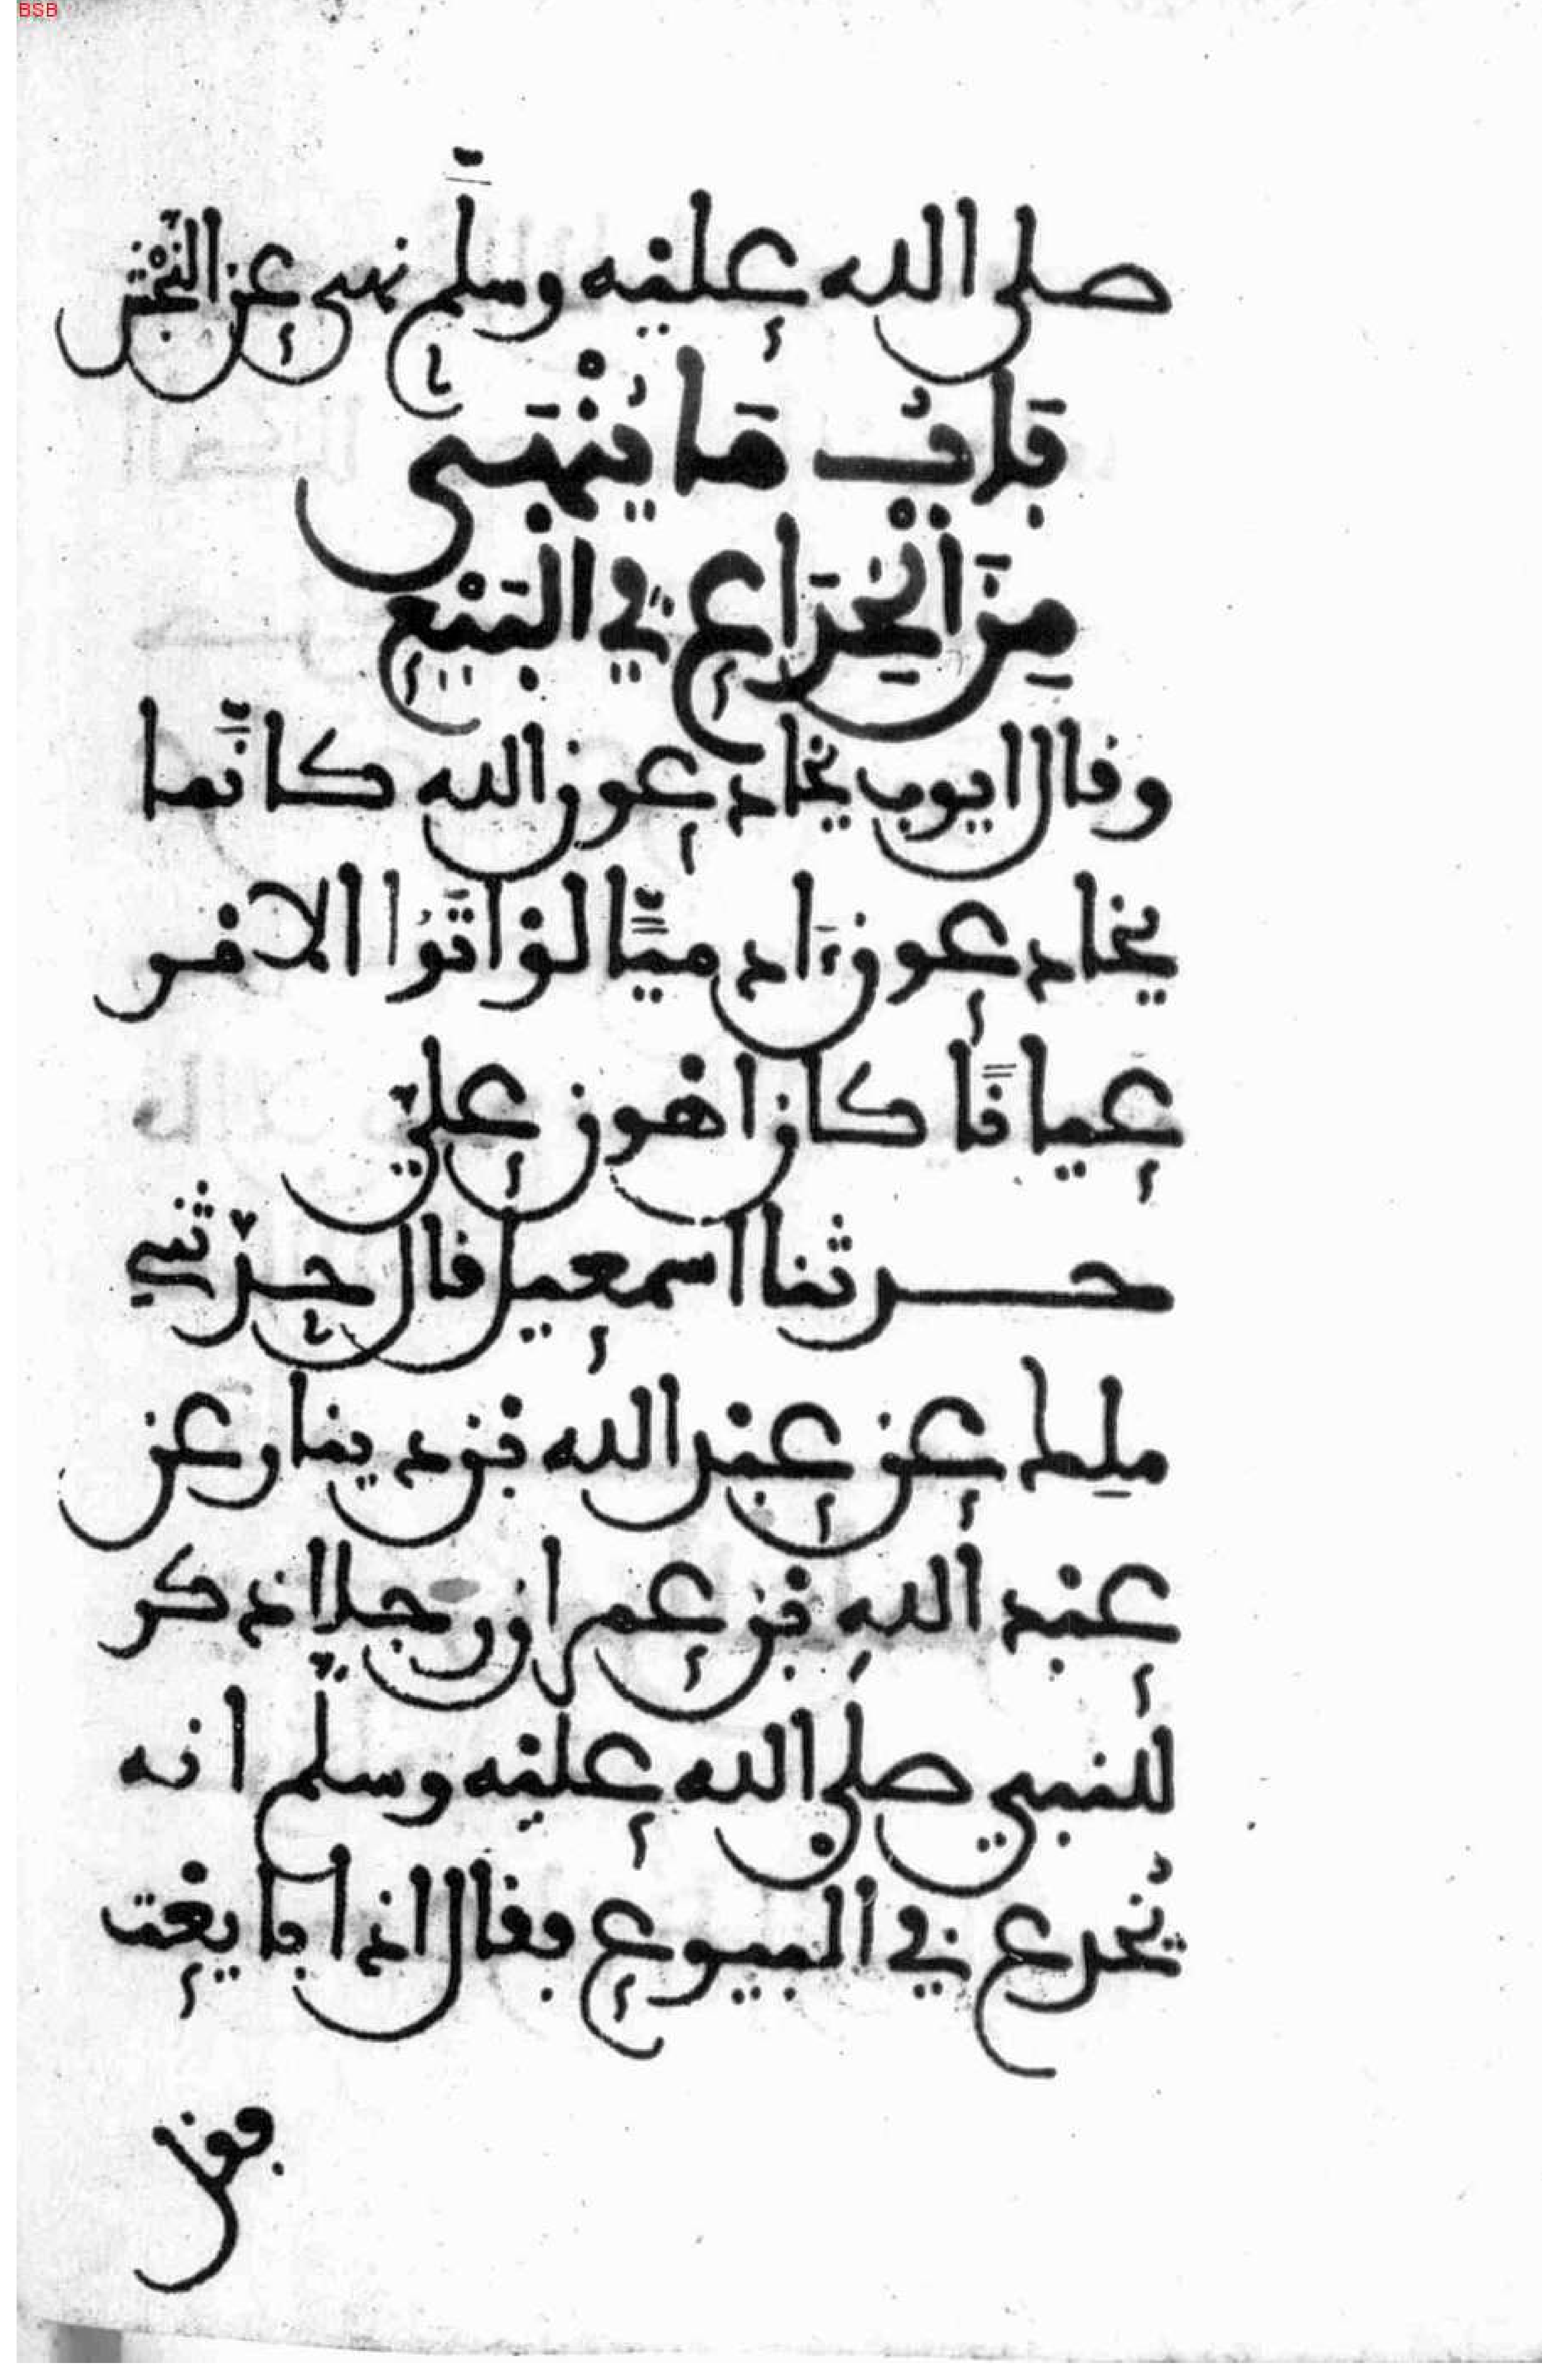 BSB
صلى الله عليه وسلَّم نهى عن النَّجْش
بَابُ مَا يُنْهَى
مِنَ الْخِدَاعِ فِي الْبَيْعِ
وقال ايوب يخادعون الله كانَّما
يخادعون ءادميًّا لوْ اتَوُا الامر
عيانًا كان اهون عليّ
حدثنا اسمعيل قال حدّثني
ملِك عن عبْد الله بن دينار عن
عبْد اللهِ بن عمر ان رجلا ذكر
للنبي صلى الله عليْه وسلم انه
يُخدع في البيوع فقال اذا بايعْت
فقل